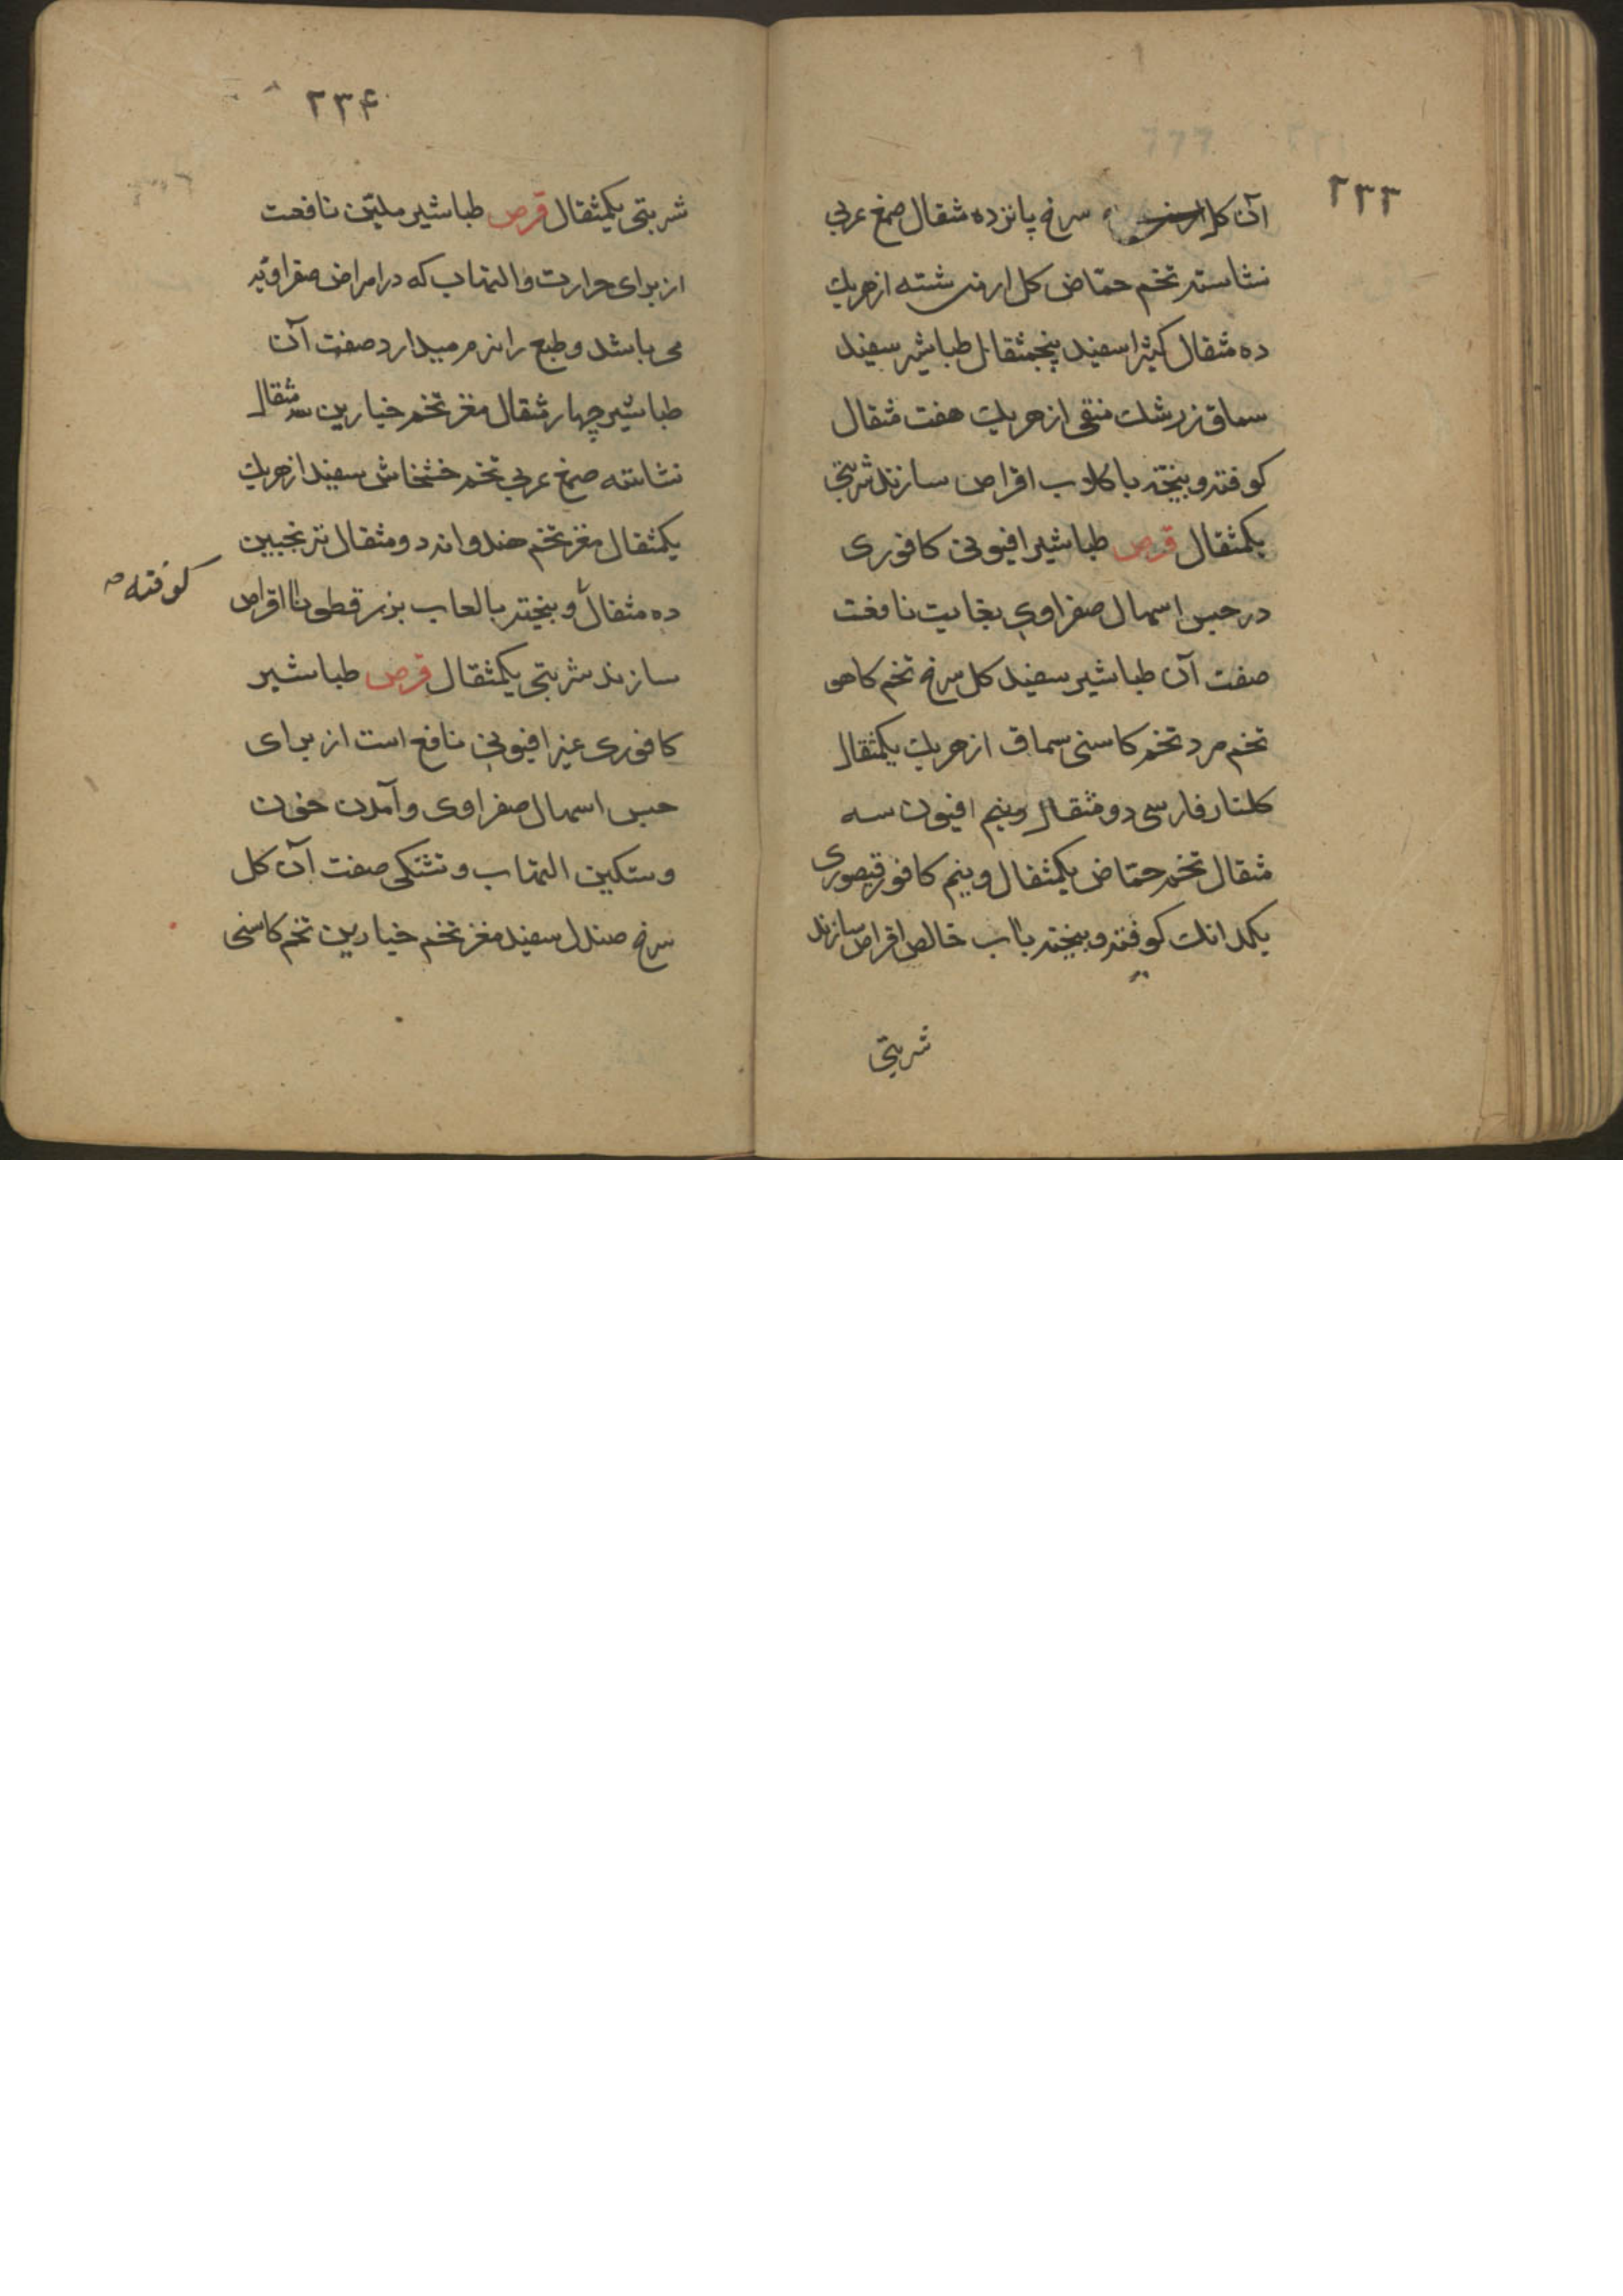 ۲۳۳
آن کل سرخ پانزده مثقال صمغ عربی
نشاسته تخم حمّاض کل ارمنی شسته از هریك
ده مثقال کثیرا سفید پنجمثقال طباشیر سفید
سماق زرشك منقی از هریك هفت مثقال
کوفته و بیخته با کلاب اقراص سازند شربتی
یکمثقال قرص طباشیر افیونی کافوری
در حبس اسهال صفراوی بغایت نافعت
صفت آن طباشیر سفید کل سرخ تخم کاهو
تخم مرد تخم کاسنی سماق از هریك یکمثقال
کلنار فارسی دو مثقال و نیم افیون سه
مثقال تخم حمّاض یکمثقال و نیم کافور قیصوری
یکدانك کوفته و بیخته باب خالص اقراص سازند
شربتی
۲۳۴
شربتی یکمثقال قرص طباشیر ملیّن نافعت
از برای حرارت و التهاب که در امراض صفراویّه
می باشد و طبع را نرم میدارد صفت آن
طباشیر چهار مثقال مغز تخم خیارین سه مثقال
نشاسته صمغ عربی تخم خشخاش سفید از هریك
یکمثقال مغز تخم هندوانه دو مثقال ترنجبین
ده مثقال و بیخته بالعاب بزر قطونا اقراص
کوفته صح
سازند شربتی یکمثقال قرص طباشیر
کافوری غیر افیونی نافع است از برای
حبس اسهال صفراوی و آمدن خون
و ستکین التهاب و تشنکی صفت آن کل
سرخ صندل سفید مغز تخم خیارین تخم کاسنی